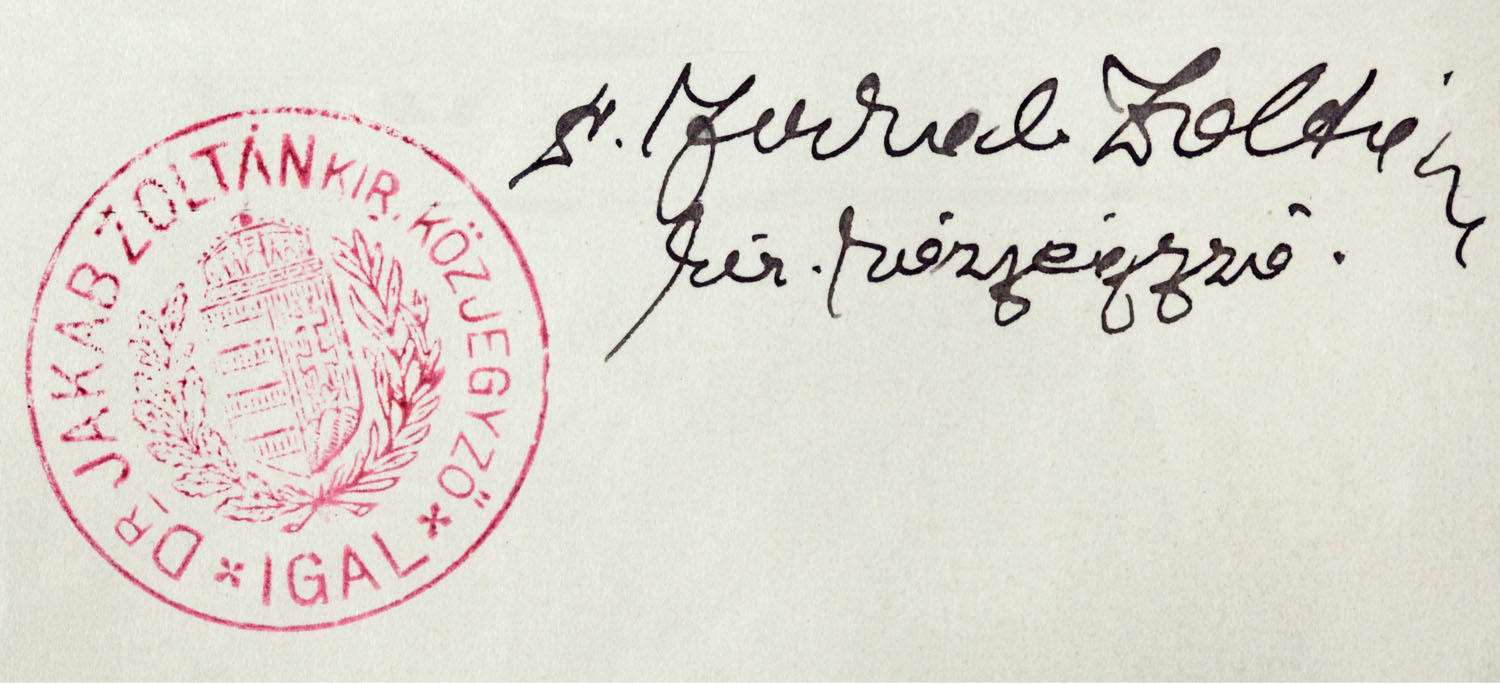 DR. JAKAB ZOLTÁN KIR. KÖZJEGYZŐ
* IGAL *
dr. Jakab Zoltán
kir. közjegyző.